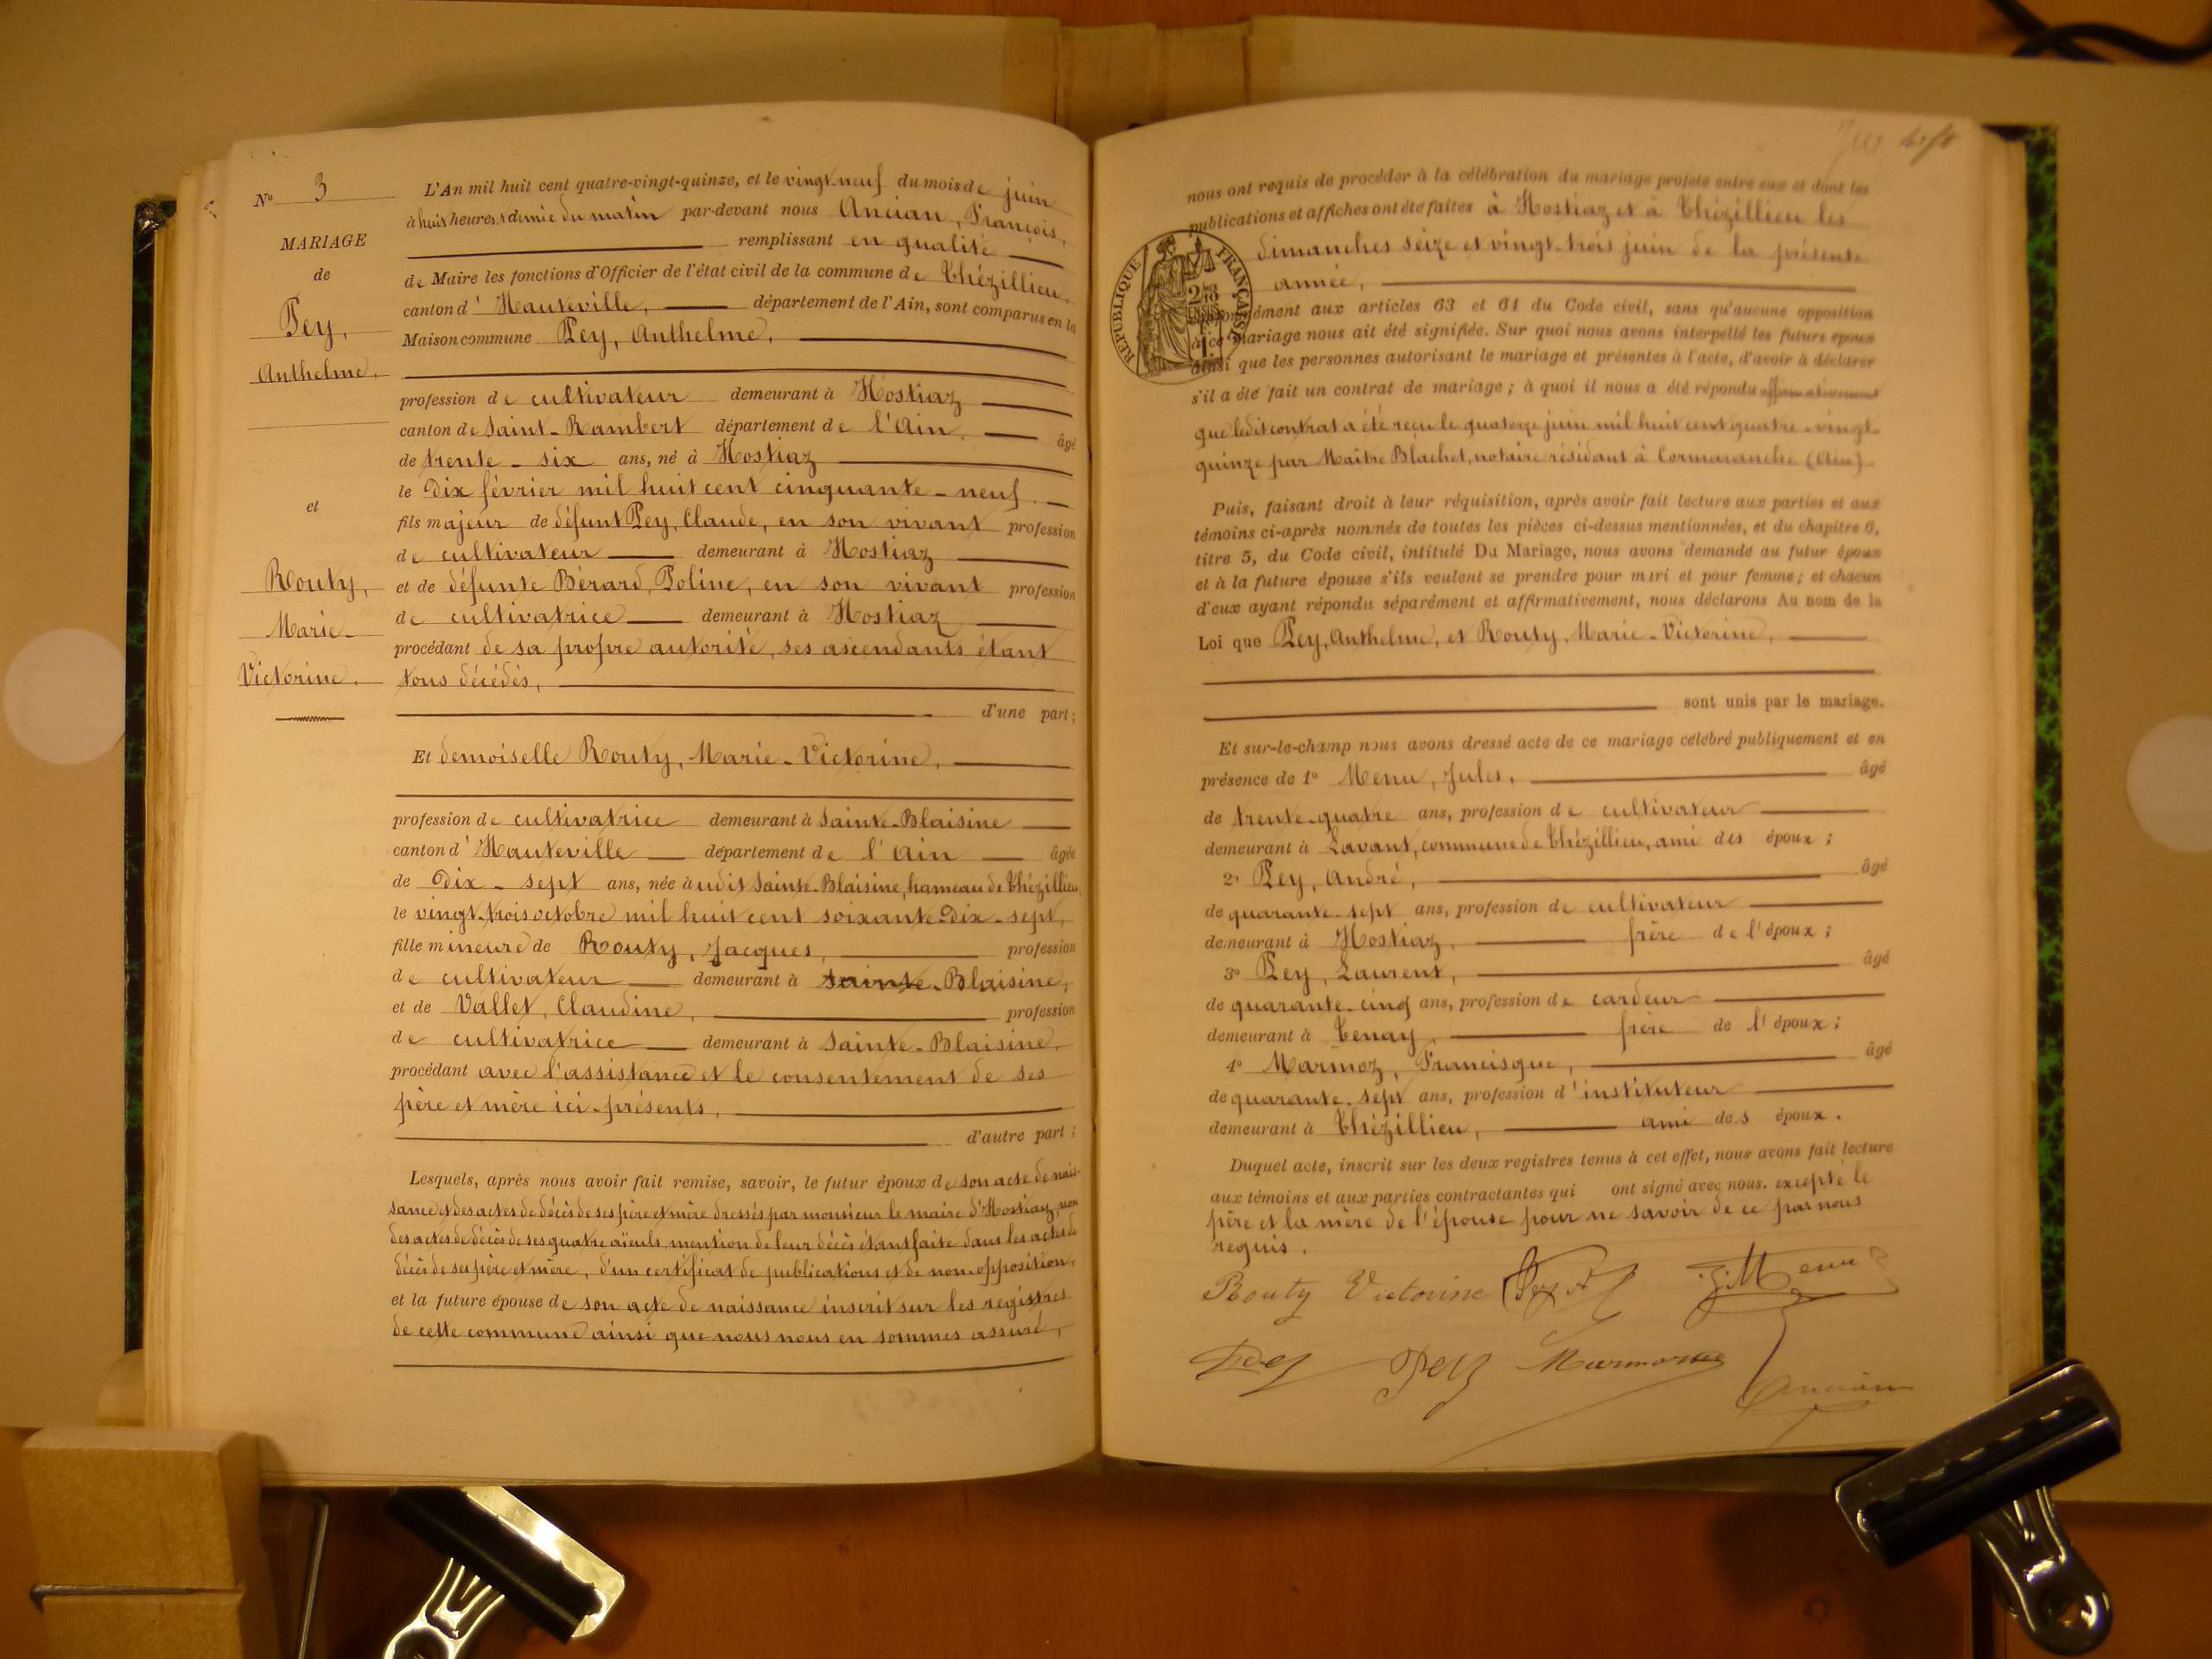 N° 3
MARIAGE
de
Pey,
Anthelme.
et
Routy,
Marie-
Victorine.
L'An mil huit cent quatre-vingt-quinze, et le vingt-neuf du mois de juin
à huit heures & demie du matin par-devant nous Ancian, François,
remplissant en qualité
de Maire les fonctions d'Officier de l'état civil de la commune de Thézillieu,
canton d'Hauteville, département de l'Ain, sont comparus en la
Maison commune Pey, Anthelme,
profession de cultivateur demeurant à Hostiaz
canton de Saint-Rambert département de l'Ain, âgé
de trente-six ans, né à Hostiaz
le dix février mil huit cent cinquante-neuf.
fils majeur de défunt Pey, Claude, en son vivant profession
de cultivateur demeurant à Hostiaz
et de défunte Bérard, Poline, en son vivant profession
de cultivatrice demeurant à Hostiaz
procédant de sa propre autorité, ses ascendants étant
tous décédés,
d'une part;
Et demoiselle Routy, Marie-Victorine,
profession de cultivatrice demeurant à Sainte-Blaisine
canton d'Hauteville département de l'Ain âgée
de dix-sept ans, née àudit Sainte-Blaisine, hameau de Thézillieu,
le vingt-trois octobre mil huit cent soixante-dix-sept,
fille mineure de Routy, Jacques, profession
de cultivateur demeurant à Sainte-Blaisine,
et de Vallet, Claudine, profession
de cultivatrice demeurant à Sainte-Blaisine,
procédant avec l'assistance et le consentement de ses
père et mère ici-présents,
d'autre part;
Lesquels, après nous avoir fait remise, savoir, le futur époux de son acte de nais-
sance et des actes de décès de ses père et mère dressés par monsieur le maire d'Hostiaz, non
des actes de décès de ses quatre aïeuls, mention de leur décès étant faite dans les actes de
décès de ses père et mère, d'un certificat de publications et de non-opposition,
et la future épouse de son acte de naissance inscrit sur les registres
de cette commune ainsi que nous nous en sommes assuré,
nous ont requis de procéder à la célébration du mariage projeté entre eux et dont les
publications et affiches ont été faites à Hostiaz et à Thézillieu les
dimanches seize et vingt-trois juin de la présente
année,
RÉPUBLIQUE FRANÇAISE
conformément aux articles 63 et 64 du Code civil, sans qu'aucune opposition
à ce mariage nous ait été signifiée. Sur quoi nous avons interpellé les futurs époux
ainsi que les personnes autorisant le mariage et présentes à l'acte, d'avoir à déclarer
s'il a été fait un contrat de mariage; à quoi il nous a été répondu affirmativement
que ledit contrat a été reçu le quatorze juin mil huit cent quatre-vingt-
quinze par Maître Blachet, notaire résidant à Cormaranche (Ain)
Puis, faisant droit à leur réquisition, après avoir fait lecture aux parties et aux
témoins ci-après nommés de toutes les pièces ci-dessus mentionnées, et du chapitre 6,
titre 5, du Code civil, intitulé Du Mariage, nous avons demandé au futur époux
et à la future épouse s'ils veulent se prendre pour mari et pour femme; et chacun
d'eux ayant répondu séparément et affirmativement, nous déclarons Au nom de la
Loi que Pey, Anthelme, et Routy, Marie-Victorine,
sont unis par le mariage.
Et sur-le-champ nous avons dressé acte de ce mariage célébré publiquement et en
présence de 1° Menu, Jules, âgé
de trente-quatre ans, profession de cultivateur
demeurant à Lavant, commune de Thézillieu, ami des époux;
2° Pey, André, âgé
de quarante-sept ans, profession de cultivateur
demeurant à Hostiaz, frère de l'époux;
3° Pey, Laurent, âgé
de quarante-cinq ans, profession de cardeur
demeurant à Tenay, frère de l'époux;
4° Marmoz, Francisque, âgé
de quarante-sept ans, profession d'instituteur
demeurant à Thézillieu, ami des époux.
Duquel acte, inscrit sur les deux registres tenus à cet effet, nous avons fait lecture
aux témoins et aux parties contractantes qui ont signé avec nous. excepté le
père et la mère de l'épouse pour ne savoir de ce par nous
requis.
Routy Victorine Pey A J. Menu
Pey Pey Marmoz
Ancian